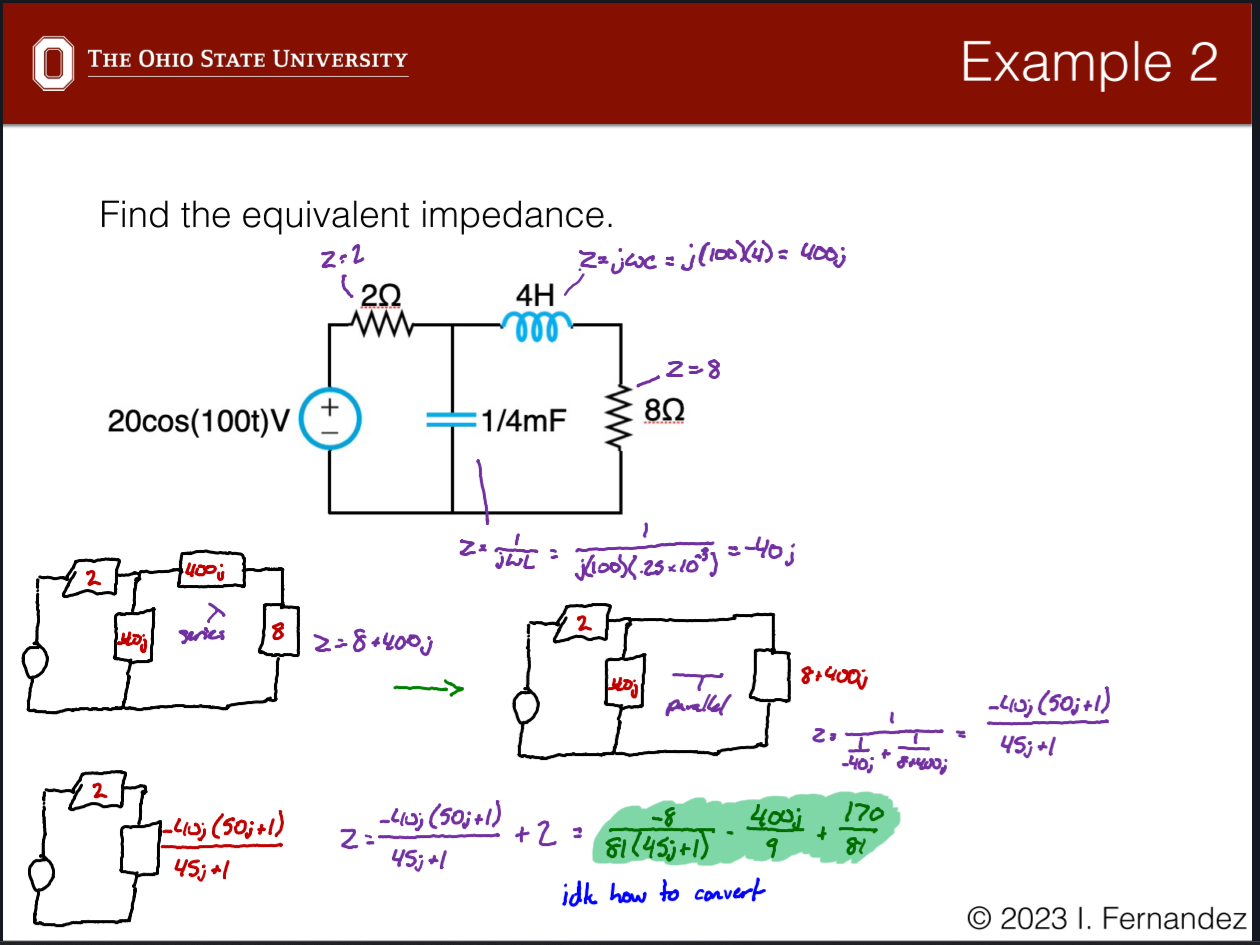 THE OHIO STATE UNIVERSITY
Example 2
Find the equivalent impedance.
Z=2
Z=jωc = j(100)(4) = 400j
2Ω
4H
Z=8
20cos(100t)V
+
−
1/4mF
8Ω
Z= 1/jωL = 1/j(100)(.25×10^-3) = -40j
2
400j
-40j
series
8
Z=8+400j
2
-40j
parallel
8+400j
Z= 1/(1/-40j + 1/8+400j) = -40j(50j+1)/45j+1
2
-40j(50j+1)/45j+1
Z= -40j(50j+1)/45j+1 + 2 = -8/81(45j+1) - 400j/9 + 170/81
idk how to convert
© 2023 I. Fernandez